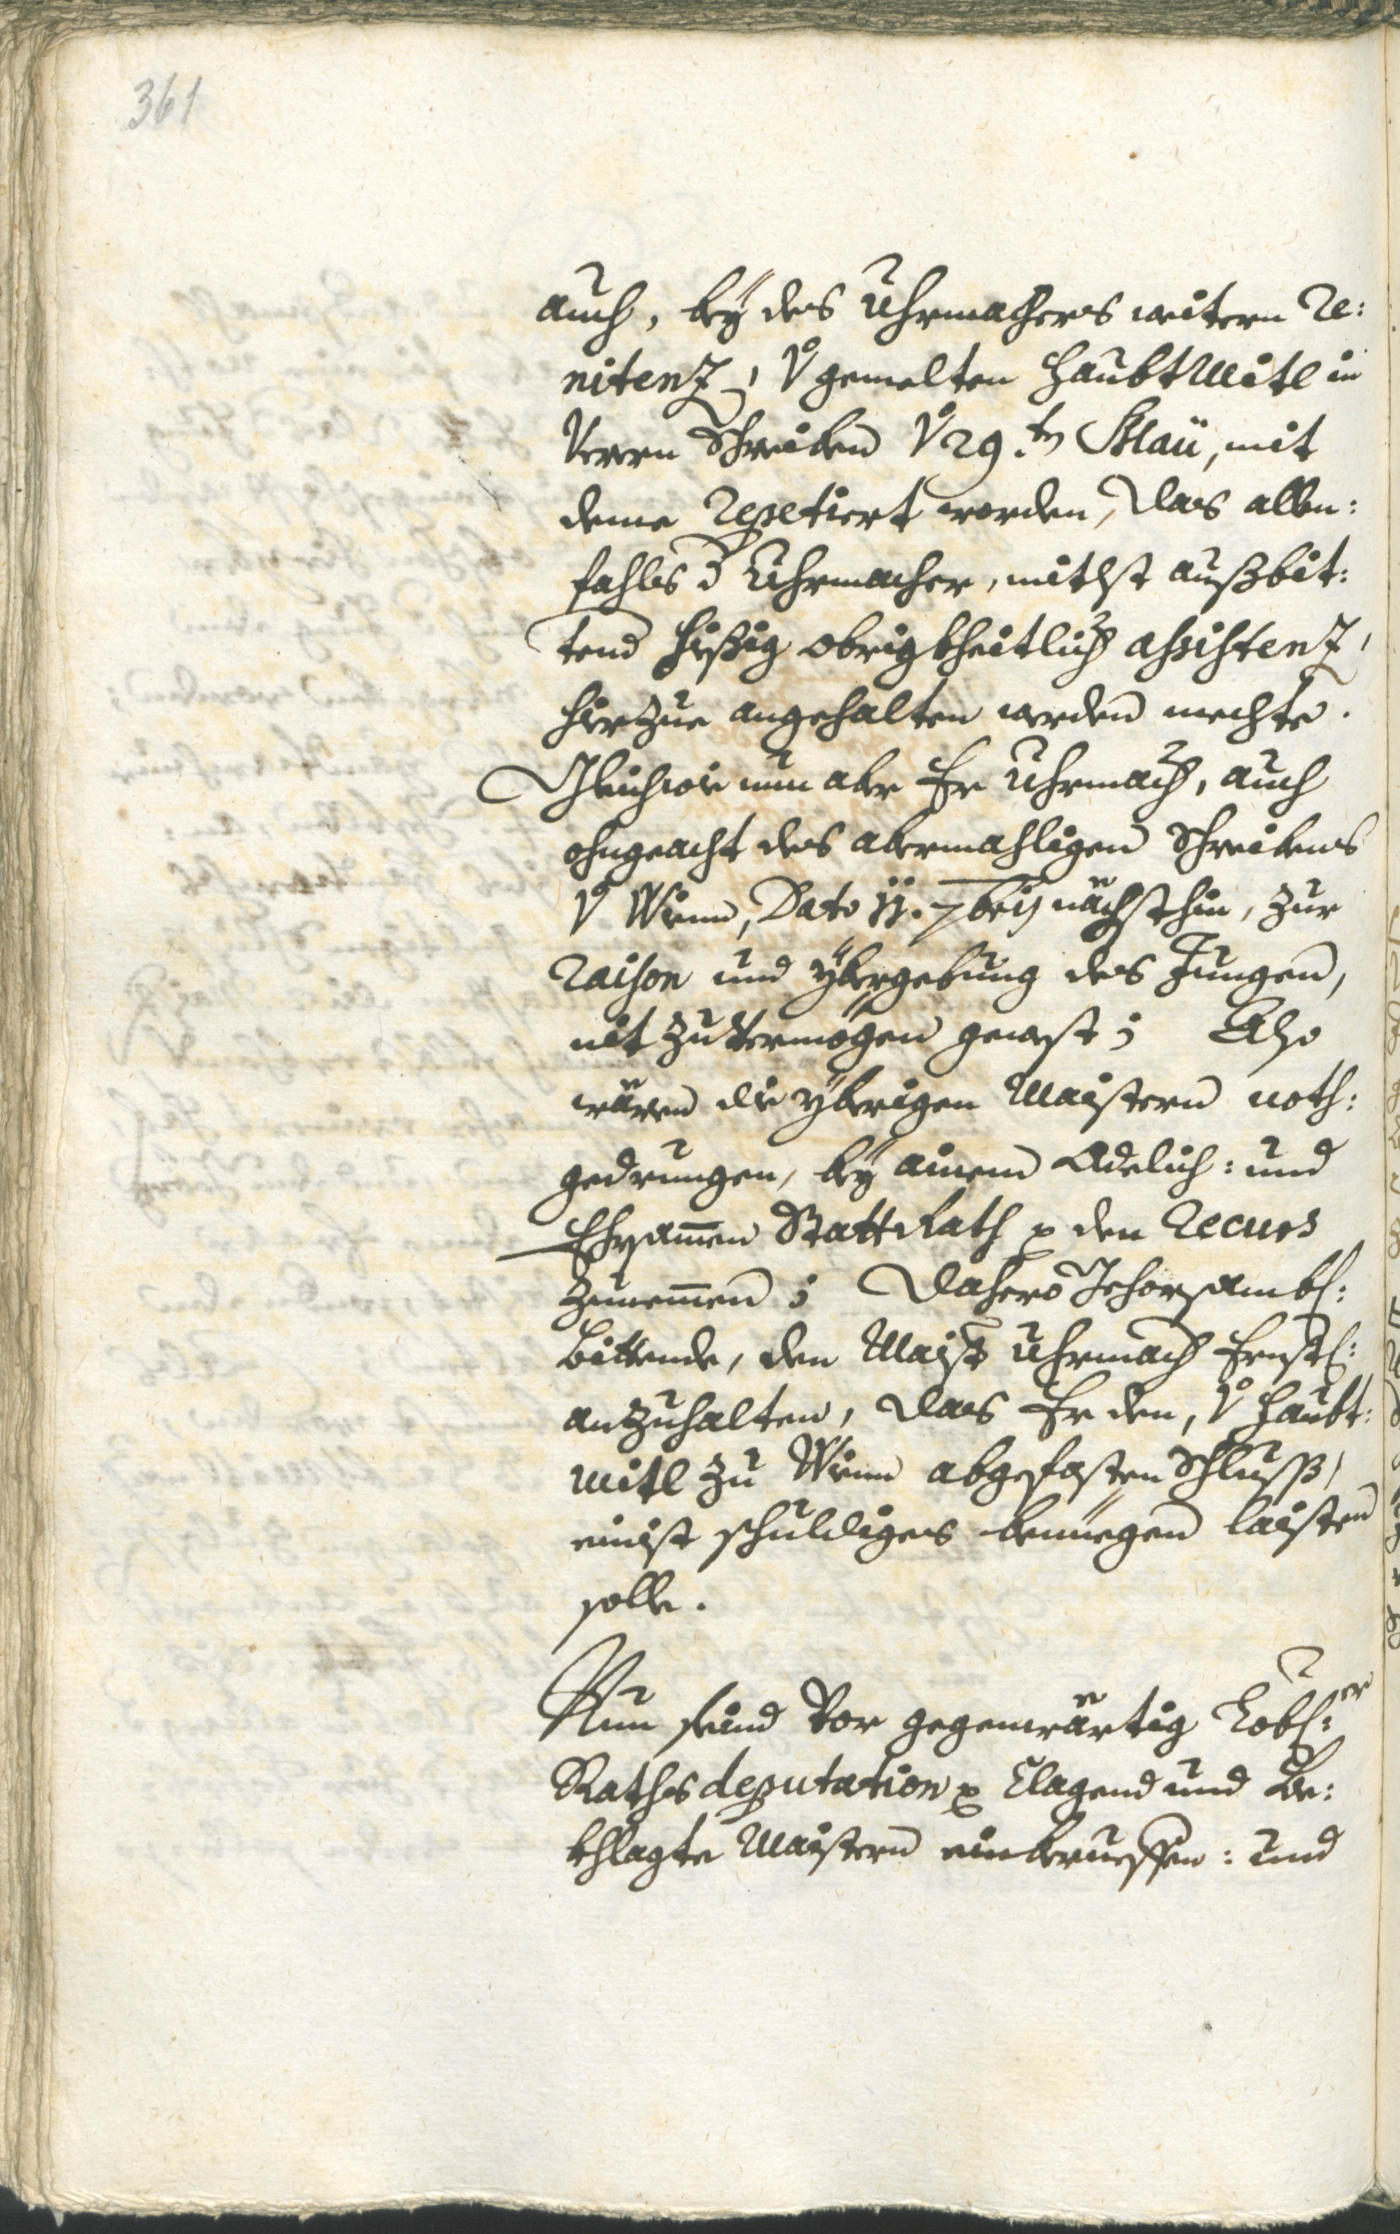 361
auch, beÿ des Uhrmachers weitern Re:
nitenz, v gemelten HaubtMitl in
Verrn Schreiben v 29.tn Maii, mit
deme repetiert worden, das allen:
fahls d Uhrmacher, mitlst außbit:
tend hießig obrigkheitlich assistenz,
hierzue angehalten werden mechte.
Gleichwie nun aber Er Uhrmach, auch
ohngeacht des abermahligen Schreibens
v Wienn, Dato 11. 7bris nächsthin, zur
raison und ÿbergebung des Jungen,
nit zu vermögen gewest; Also
wären die ÿbrigen Maistern noth:
gedrungen, beÿ ainem Adelich: und
Ehrsammen StattRath p den Recurs
zunemmen; Dahero Gehorsambl:
bittende, den Maist Uhrmach Ernstl:
anzuhalten, das Er den, v Haubt:
mitl zu Wienn abgefasten Schluss,
einist schuldiges benüegen laisten
solle.
Nun seind vor gegenwärtig Löbl:er
Raths deputation p Clagend und Be:
khlagte Maistern einberueffen: und